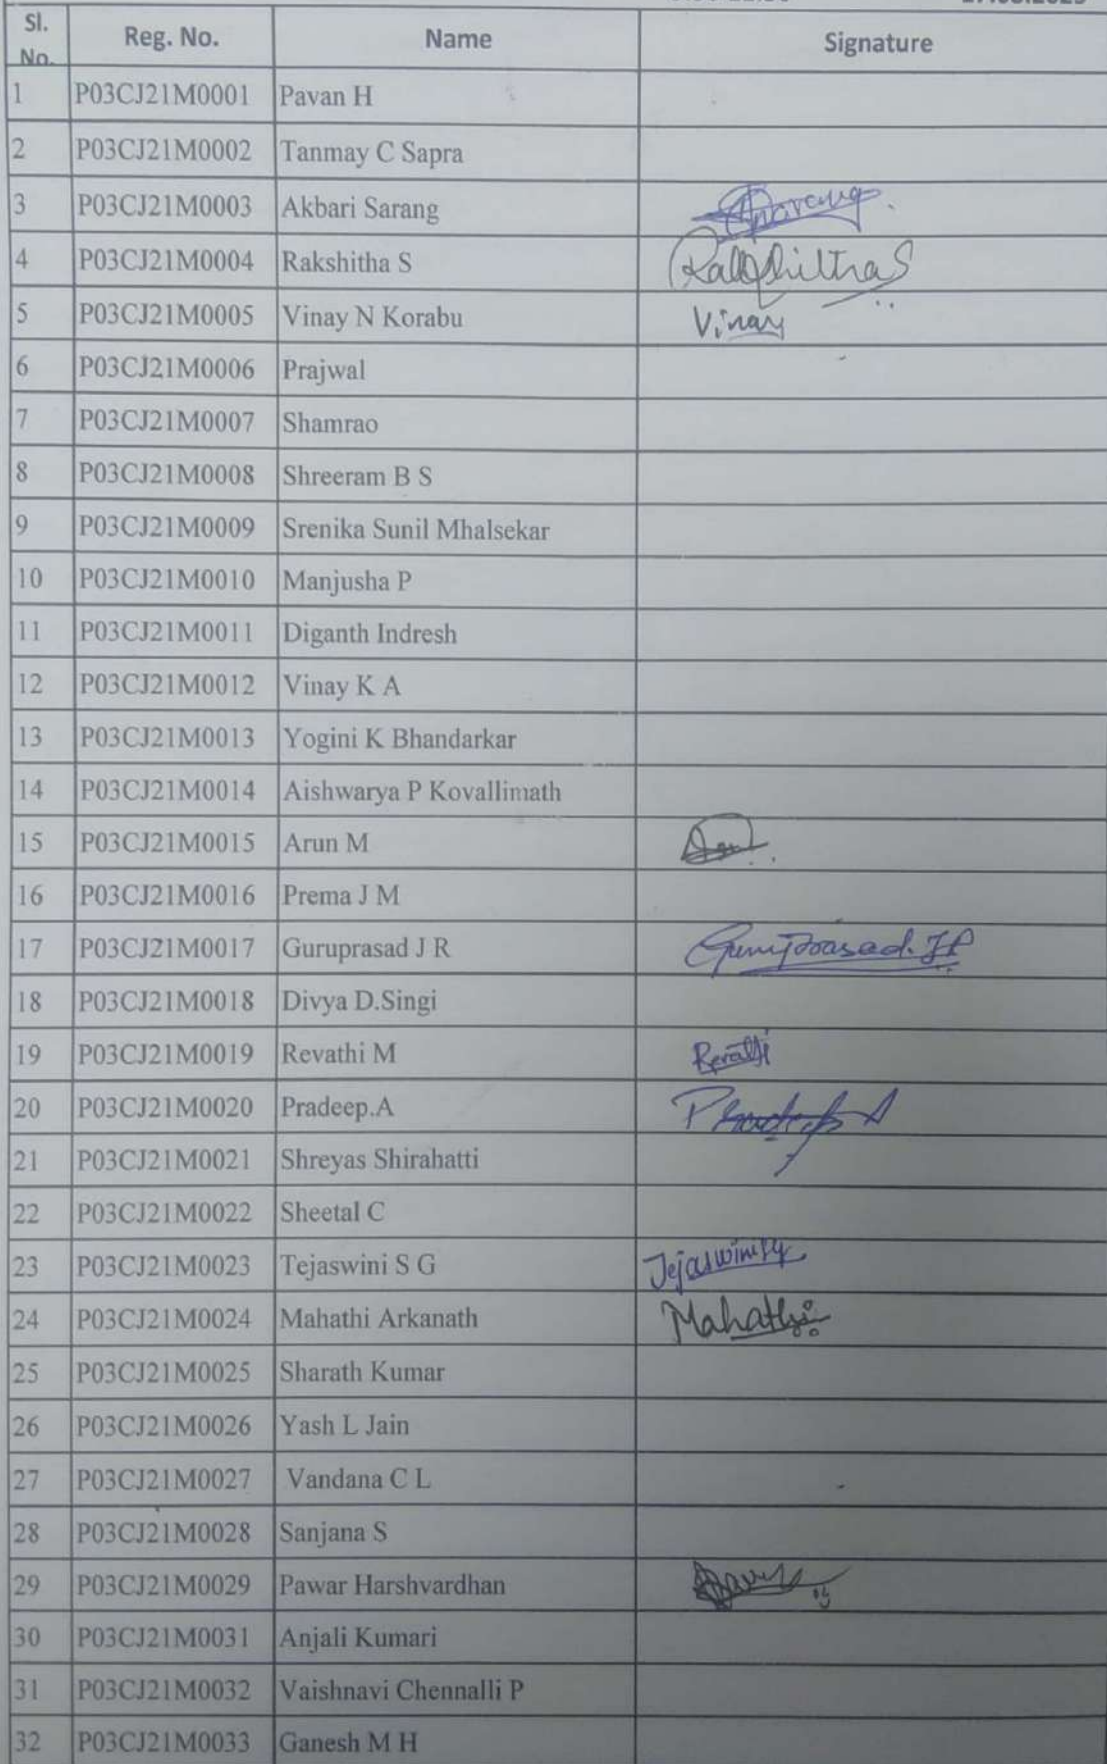 Sl. No. Reg. No. Name Signature
1 P03CJ21M0001 Pavan H
2 P03CJ21M0002 Tanmay C Sapra
3 P03CJ21M0003 Akbari Sarang
4 P03CJ21M0004 Rakshitha S Rakshitha S
5 P03CJ21M0005 Vinay N Korabu Vinay
6 P03CJ21M0006 Prajwal
7 P03CJ21M0007 Shamrao
8 P03CJ21M0008 Shreeram B S
9 P03CJ21M0009 Srenika Sunil Mhalsekar
10 P03CJ21M0010 Manjusha P
11 P03CJ21M0011 Diganth Indresh
12 P03CJ21M0012 Vinay K A
13 P03CJ21M0013 Yogini K Bhandarkar
14 P03CJ21M0014 Aishwarya P Kovallimath
15 P03CJ21M0015 Arun M
16 P03CJ21M0016 Prema J M
17 P03CJ21M0017 Guruprasad J R Guruprasad. JR
18 P03CJ21M0018 Divya D.Singi
19 P03CJ21M0019 Revathi M Revathi
20 P03CJ21M0020 Pradeep.A Pradeep A
21 P03CJ21M0021 Shreyas Shirahatti
22 P03CJ21M0022 Sheetal C
23 P03CJ21M0023 Tejaswini S G Tejaswini SG
24 P03CJ21M0024 Mahathi Arkanath Mahathi
25 P03CJ21M0025 Sharath Kumar
26 P03CJ21M0026 Yash L Jain
27 P03CJ21M0027 Vandana C L
28 P03CJ21M0028 Sanjana S
29 P03CJ21M0029 Pawar Harshvardhan
30 P03CJ21M0031 Anjali Kumari
31 P03CJ21M0032 Vaishnavi Chennalli P
32 P03CJ21M0033 Ganesh M H